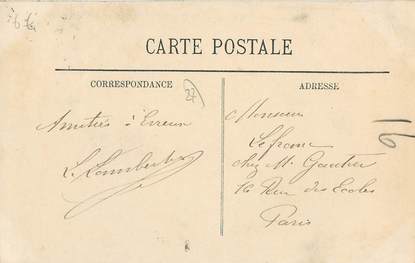 CARTE POSTALE
CORRESPONDANCE
ADRESSE
27
Amitiés à Evreux
L. Lambert
Monsieur
Lefranc
chez Mr Gautier
16 Rue des Ecoles
Paris